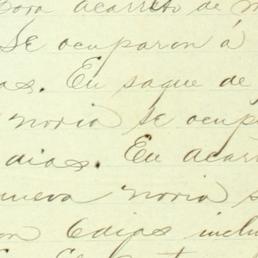 para acarreto de m
Se ocuparon á
as. En saque de
noria se ocup
dias. En acarr
nueva noria s
on 6 dias inclu